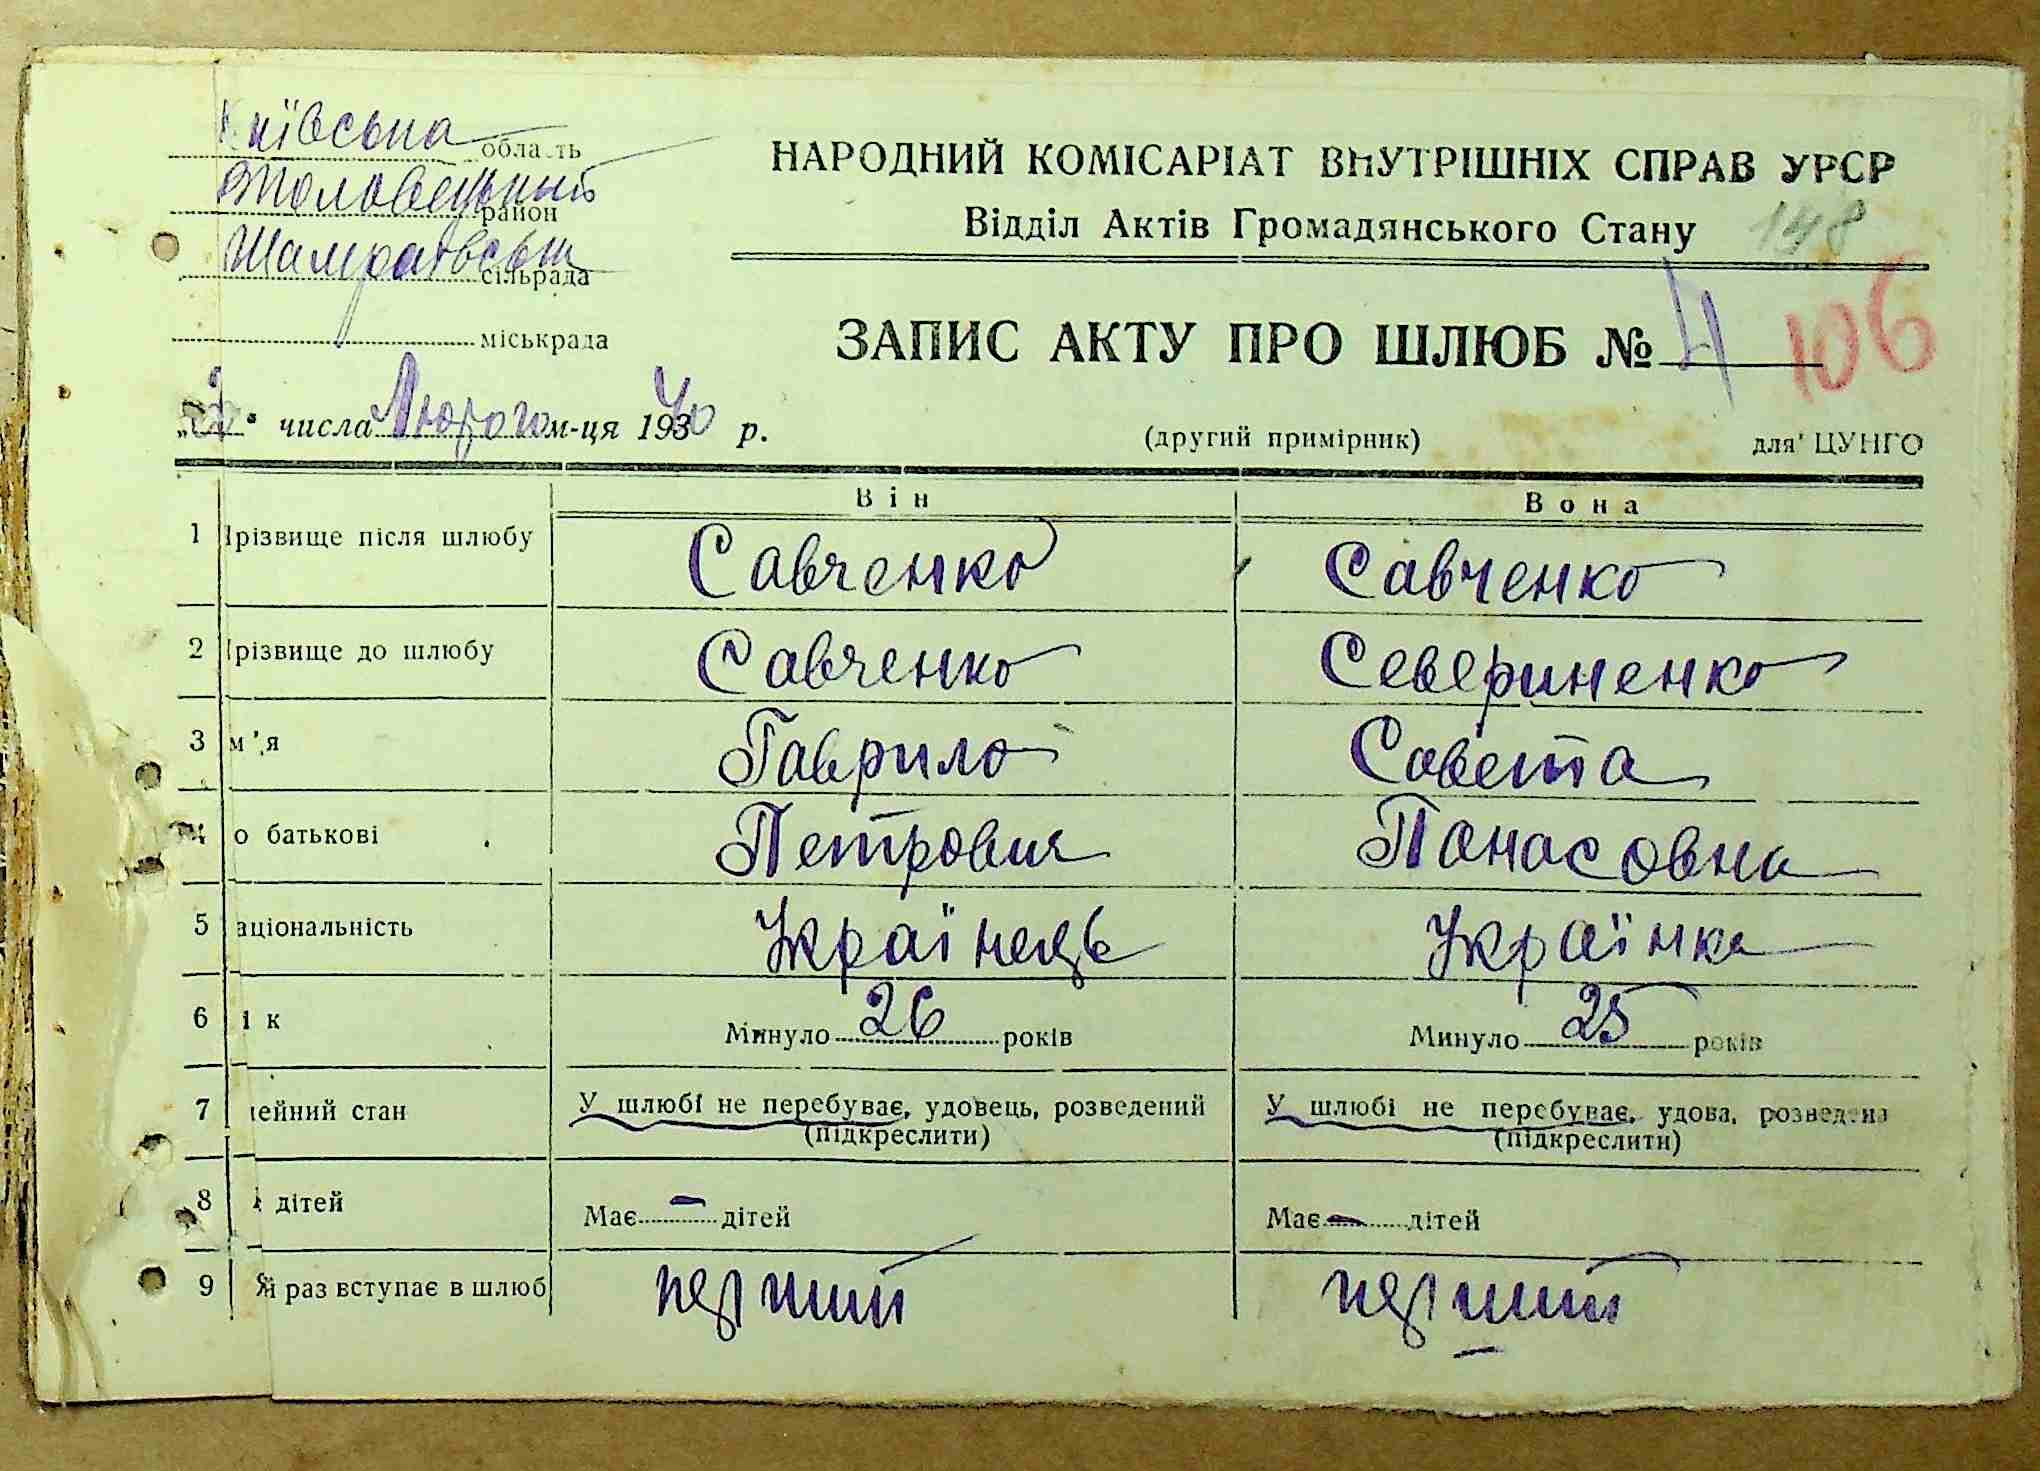 Київська область
район
Шамраївська сільрада
міськрада
НАРОДНИЙ КОМІСАРІАТ ВНУТРІШНІХ СПРАВ УРСР
Відділ Актів Громадянського Стану 148
ЗАПИС АКТУ ПРО ШЛЮБ № 4 106
числа Лютого м-ця 1940 р. (другий примірник) для ЦУНГО
Він Вона
1 Прізвище після шлюбу Савченко Савченко
2 Прізвище до шлюбу Савченко Севериненко
3 м'я Гаврило Савета
4 о батькові Петрович Панасовна
5 аціональність Українець Українка
6 і к Минуло 26 років Минуло 25 років
7 ейний стан У шлюбі не перебуває, удовець, розведений У шлюбі не перебуває, удова, розведена
(підкреслити) (підкреслити)
8 дітей Має – дітей Має – дітей
9 й раз вступає в шлюб перший перший